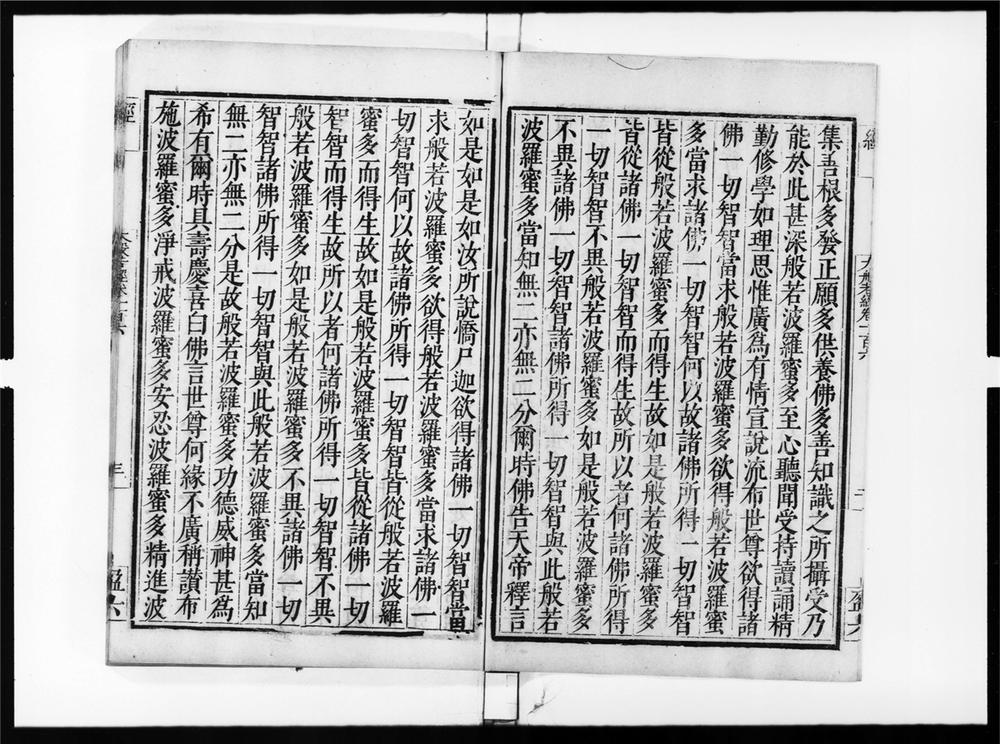 經
大般若經卷一百六
二
盈六
集善根多發正願多供養佛多善知識之所攝受乃
能於此甚深般若波羅蜜多至心聽聞受持讀誦精
勤修學如理思惟廣為有情宣說流布世尊欲得諸
佛一切智智當求般若波羅蜜多欲得般若波羅蜜
多當求諸佛一切智智何以故諸佛所得一切智智
皆從般若波羅蜜多而得生故如是般若波羅蜜多
皆從諸佛一切智智而得生故所以者何諸佛所得
一切智智不異般若波羅蜜多如是般若波羅蜜多
不異諸佛一切智智諸佛所得一切智智與此般若
波羅蜜多當知無二亦無二分爾時佛告天帝釋言
如是如是如汝所說憍尸迦欲得諸佛一切智智當
求般若波羅蜜多欲得般若波羅蜜多當求諸佛一
切智智何以故諸佛所得一切智智皆從般若波羅
蜜多而得生故如是般若波羅蜜多皆從諸佛一切
智智而得生故所以者何諸佛所得一切智智不異
般若波羅蜜多如是般若波羅蜜多不異諸佛一切
智智諸佛所得一切智智與此般若波羅蜜多當知
無二亦無二分是故般若波羅蜜多功德威神甚為
希有爾時具壽慶喜白佛言世尊何緣不廣稱讚布
施波羅蜜多淨戒波羅蜜多安忍波羅蜜多精進波
經
大般若經卷一百六
三
盈六